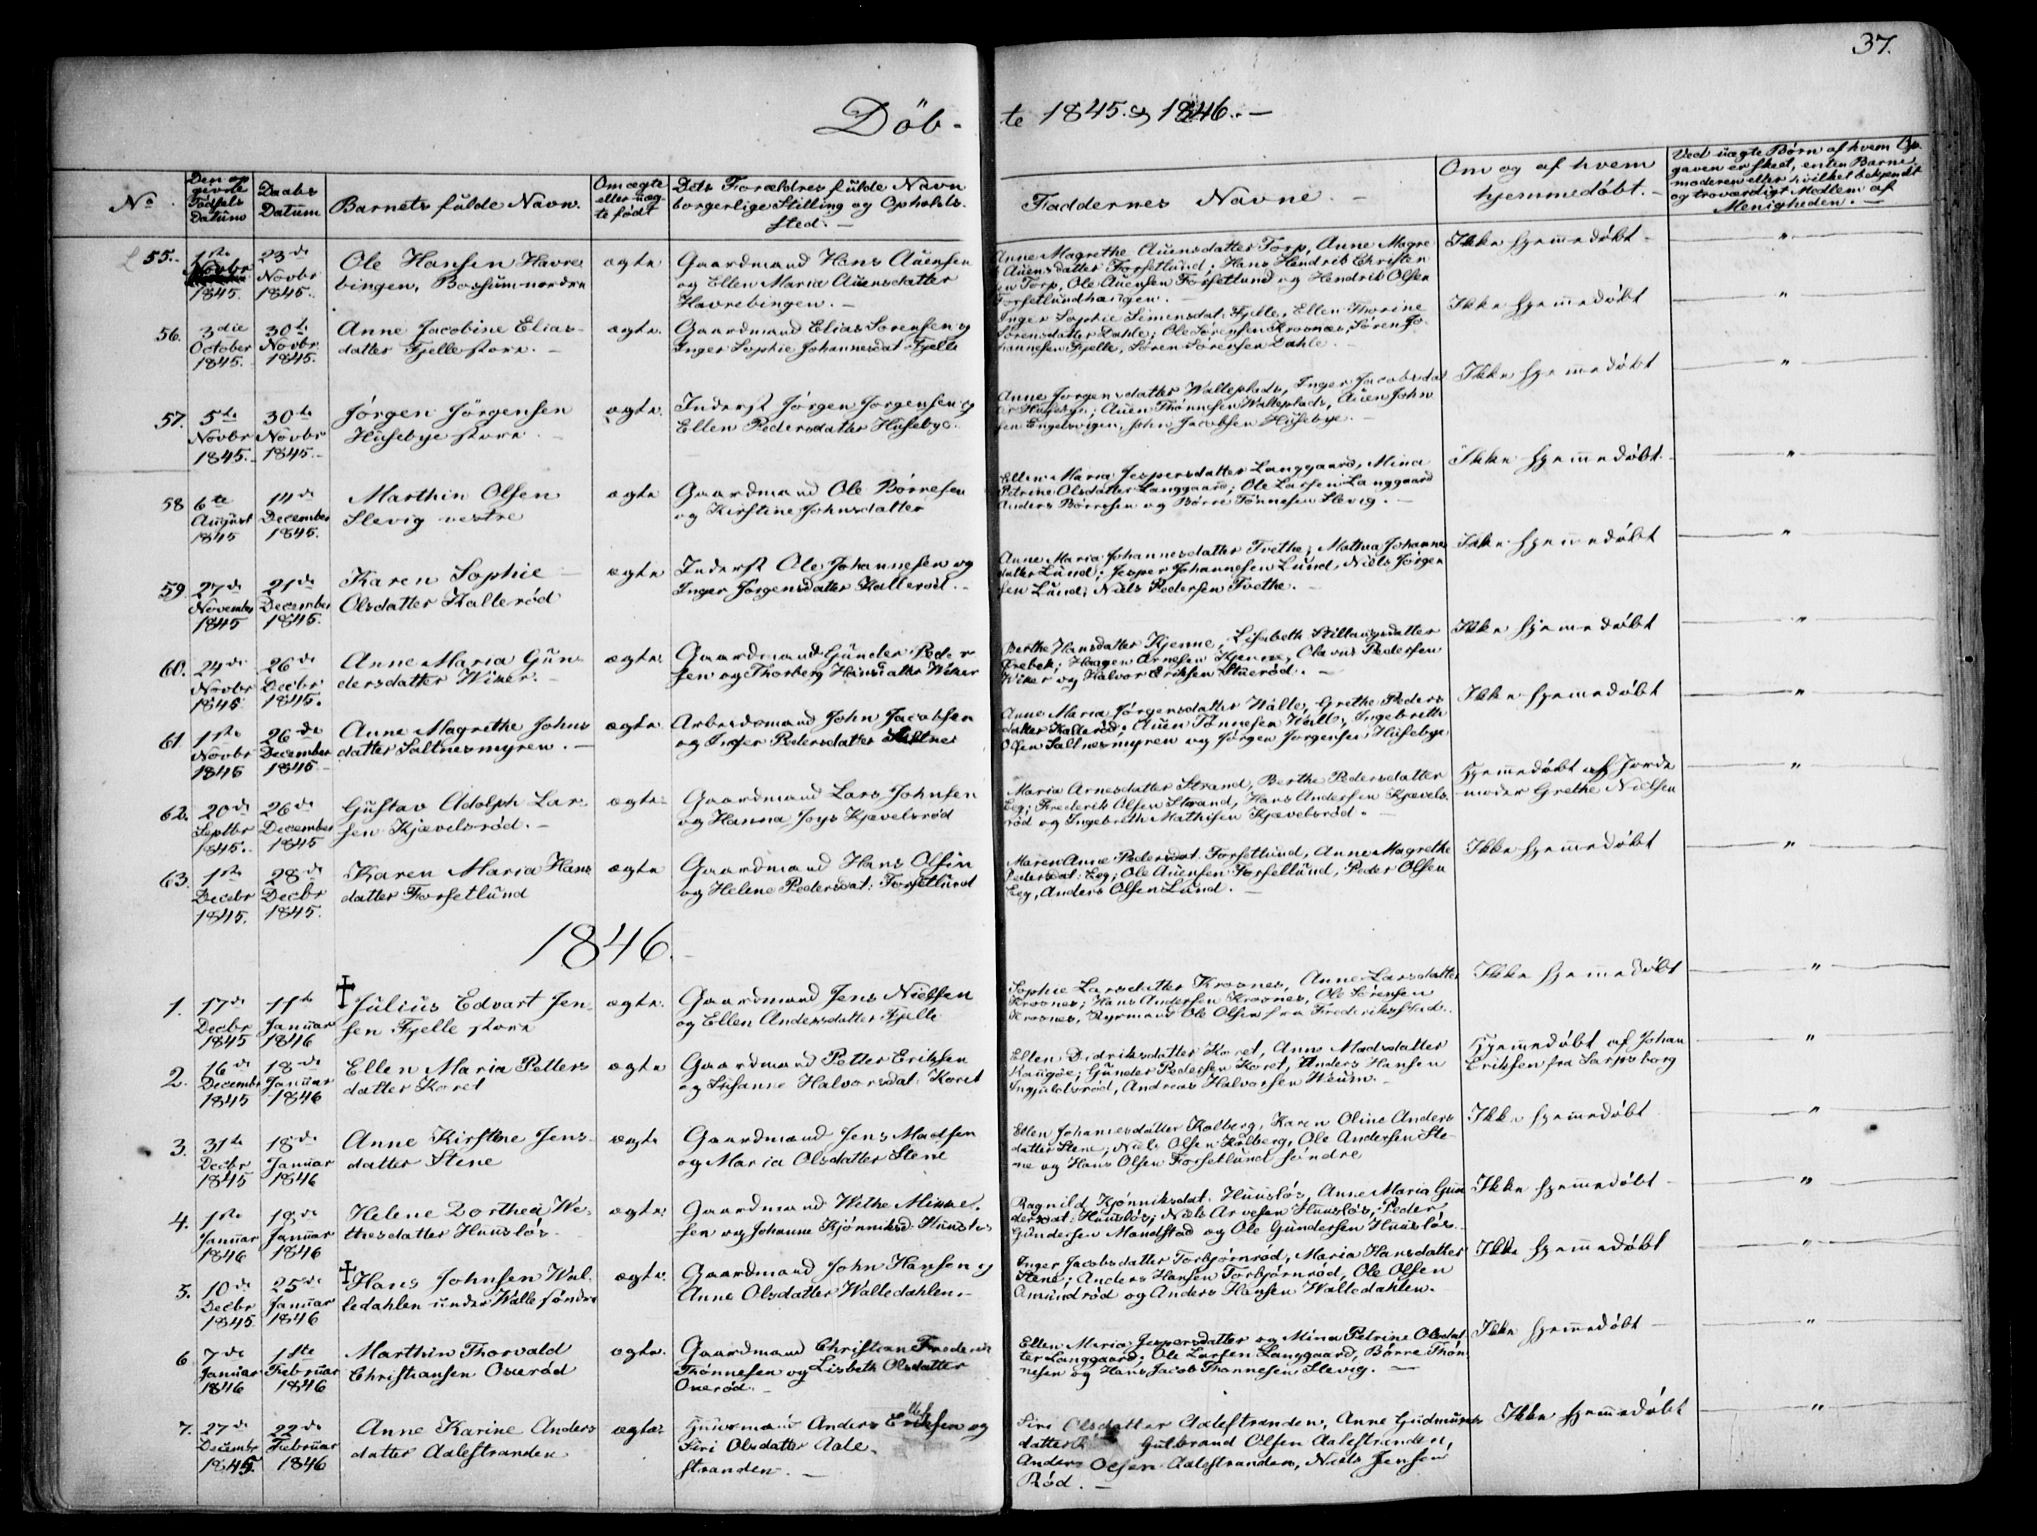 37.
Döb- te 1845. & 1846. —
No.
Den op
givede
Fødsels
Datum
Daabs
Datum
Barnets fulde Navn.
Om ægte
eller uæg-
te født
Dets Forældres fulde Navn
borgerlige Stilling og Opholds-
sted. —
Faddernes Navne. —
Om og af hvem
hjemmedøbt. —
Ved uægte Børn af hvem Op-
gaven er skeet, enten Barne-
moderen eller hvilket bekjendt
og troværdigt Medlem af
Menigheden. —
55. 1ste Novbr 1845. 23de Novbr 1845.
Ole Hansen Havre-
bingen, Bossum nordre
ægte
Gaardmand Hans Auensen
og Ellen Maria Auensdatter
Havrebingen. —
Anne Magrethe Auensdatter Torp, Anne Magre
Auensdatter Forsetlund; Hans Hendrik Christen
sen Torp, Ole Auensen Forsetlund og Hendrik Olsen
Forsetlundhaugen. —
Ikke hjemmedøbt "
56. 3die October 1845. 30te Novbr 1845.
Anne Jacobine Elias-
datter Fjelle store. —
ægte
Gaardmand Elias Sørensen og
Inger Sophie Johannesdat Fjelle
Inger Sophie Simensdat. Fjelle, Ellen Thorine
Sørensdatter Dahle; Ole Sørensen Krosnæs, Søren Jo-
hannesen Fjelle, Søren Sørensen Dahle. —
Ikke hjemmedøbt "
57. 5te Novbr 1845. 30te Novbr 1845.
Jørgen Jørgensen
Husebye store. —
ægte
Inderst Jørgen Jørgensen og
Ellen Pedersdatter Husebye.
Anne Jørgensdatter Walleplads, Inger Jacobsdat
ter Husebye; Auen Thønnesen Walleplads, Auen John
sen Engelsvigen, John Jacobsen Husebye. —
Ikke hjemmedøbt "
58 6te August 1845 14de December 1845.
Marthin Olsen
Slevig vestre
ægte
Gaardmand Ole Børresen
og Kirstine Johnsdatter
Ellen Maria Jespersdatter Langgaard, Mina
Petrine Olsdatter Langgaard; Ole Larsen Langgaard
Anders Børresen og Børre Tønnesen Slevig. —
Ikke hjemmedøbt. "
59. 27de November 1845 21de December 1845.
Karen Sophie
Olsdatter Kallerød
ægte
Inderst Ole Johannesen og
Inger Jørgensdatter Kallerød. —
Anne Maria Johannesdatter Tvethe; Mathea Johannes
datter Lund; Jesper Johannesen Lund, Niels Jørgen
sen Lund; Niels Pedersen Tvethe. —
Ikke hjemmedøbt "
60. 24de Novbr 1845 26de Decbr 1845.
Anne Maria Gun-
dersdatter Wiker. —
ægte
Gaardmand Gunder Peder
sen og Thorberg Hansdatter Wiker
Berthe Hansdatter Kjenne, Lisabeth Stillaugsdatter
Ørebek; Haagen Arnesen Kjenne, Olavus Pedersen
Wiker og Halvor Eriksen Stuerød. —
Ikke hjemmedøbt "
61. 1ste Novbr 1845 26de December 1845
Anne Magrethe Johns
datter Saltnesmyren. —
ægte
Arbeidsmand John Jacobsen
og Inger Pedersdatter Saltnes
Anne Maria Jørgensdatter Walle, Grethe Peders
datter Kallerød; Auen Tønnesen Walle, Ingebreth
Olsen Saltnesmyren og Jørgen Jørgensen Husebye
Ikke hjemmedøbt "
62. 20de Septbr 1845. 26de December 1845
Gustav Adolph Lar-
sen Kjævelsrød. —
ægte
Gaardmand Lars Johnsen
og Hanna Joys Kjævelsrød
Maria Arnesdatter Strand, Berthe Pedersdatter
Eeg; Frederik Olsen Strand, Hans Andersen Kjævels-
rød og Ingebreth Mathisen Kjævelsrød. —
Hjemmedøbt af Jorde
moder Grethe Nielsen "
63. 1ste Decbr 1845. 28de Decbr 1845.
Karen Maria Hans
datter Forsetlund
ægte
Gaardmand Hans Olsen
og Helene Pedersdat: Forsetlund
Maren Anne Pedersdat Forsetlund, Anne Magrethe
Pedersdat: Eeg; Ole Auensen Forsetlund, Peder Olsen
Eeg, Anders Olsen Lund. —
Ikke hjemmedøbt "
1846.
1. 17de Decbr 1845 11te Januar 1846
† Julius Edvart Jen-
sen Fjelle store
ægte
Gaardmand Jens Nielsen
og Ellen Andersdatter Fjelle
Sophie Larsdatter Krosnes, Anne Larsdatter
Krosnes; Hans Andersen Krosnes, Ole Sørensen
Krosnes, Styrmand Ole Olsen fra Frederiksstad.
Ikke hjemmedøbt "
2. 16de Decembr 1845 18de Januar 1846
Ellen Maria Petters
datter Koret
ægte
Gaardmand Petter Eriksen
og Susanne Halvorsdat. Koret
Ellen Didriksdatter Koret, Anne Madsdatter
Raugøe; Gunder Pedersen Koret, Anders Hansen
Ingjuldsrød, Andreas Halvorsen Weum. —
Hjemmedøbt af Johan
Eriksen fra Sarpsborg "
3. 31te Decbr 1845 18de Januar 1846
Anne Kirstine Jens-
datter Stene
ægte
Gaardmand Jens Madsen
og Maria Olsdatter Stene
Ellen Johannesdatter Kolberg, Karen Oline Anders
datter Stene; Niels Olsen Kolberg, Ole Andersen Ste-
ne og Hans Olsen Forsetlund søndre
Ikke hjemmedøbt "
4. 1ste Januar 1846 18de Januar 1846
Helene Dorthea We-
thesdatter Huusløs
ægte
Gaardmand Wethe Mikkel-
sen og Johanne Kjønniksd. Huusløs
Ragnild Kjønniksdat. Huusløs, Anne Maria Gun
dersdat: Huusløs; Niels Arvesen Huusløs, Peder
Gundersen Mandstad og Ole Gundersen Huusløs.
Ikke hjemmedøbt "
5. 10de Decbr 1845 25de Januar 1846
† Hans Johnsen Wal-
ledahlen under Walle søndre
ægte
Gaardmand John Hansen og
Anne Olsdatter Walledahlen. —
Inger Jacobsdatter Torbjørnrød, Maria Hansdatter
Stene; Anders Hansen Torbjørnrød, Ole Olsen
Amundrød og Anders Hansen Walledahlen. —
Ikke hjemmedøbt "
6 7de Januar 1846 1ste Februar 1846
Marthin Thorvald
Christiansen Oxerød
ægte
Gaardmand Christian Frederik
Thønnesen og Lisbeth Olsdatter
Oxerød. —
Ellen Maria Jespersdatter og Mina Petrine Olsdat
ter Langgaard; Ole Larsen Langgaard, Børre Thøn
nesen og Hans Jacob Thønnesen Slevig. —
Ikke hjemmedøbt "
7. 27de Decembr 1845. 22de Februar 1846
Anne Karine Anders
datter Aalestranden
ægte
Huusmand Anders Eriksen og
Siri Olsdatter Aale-
stranden. —
Siri Olsdatter Aalestranden, Anne Gudmunds
datter Gulbrand Olsen Aalestranden,
Anders Olsen Aalestranden, Niels Jensen
Rød. —
Ikke hjemmedøbt "